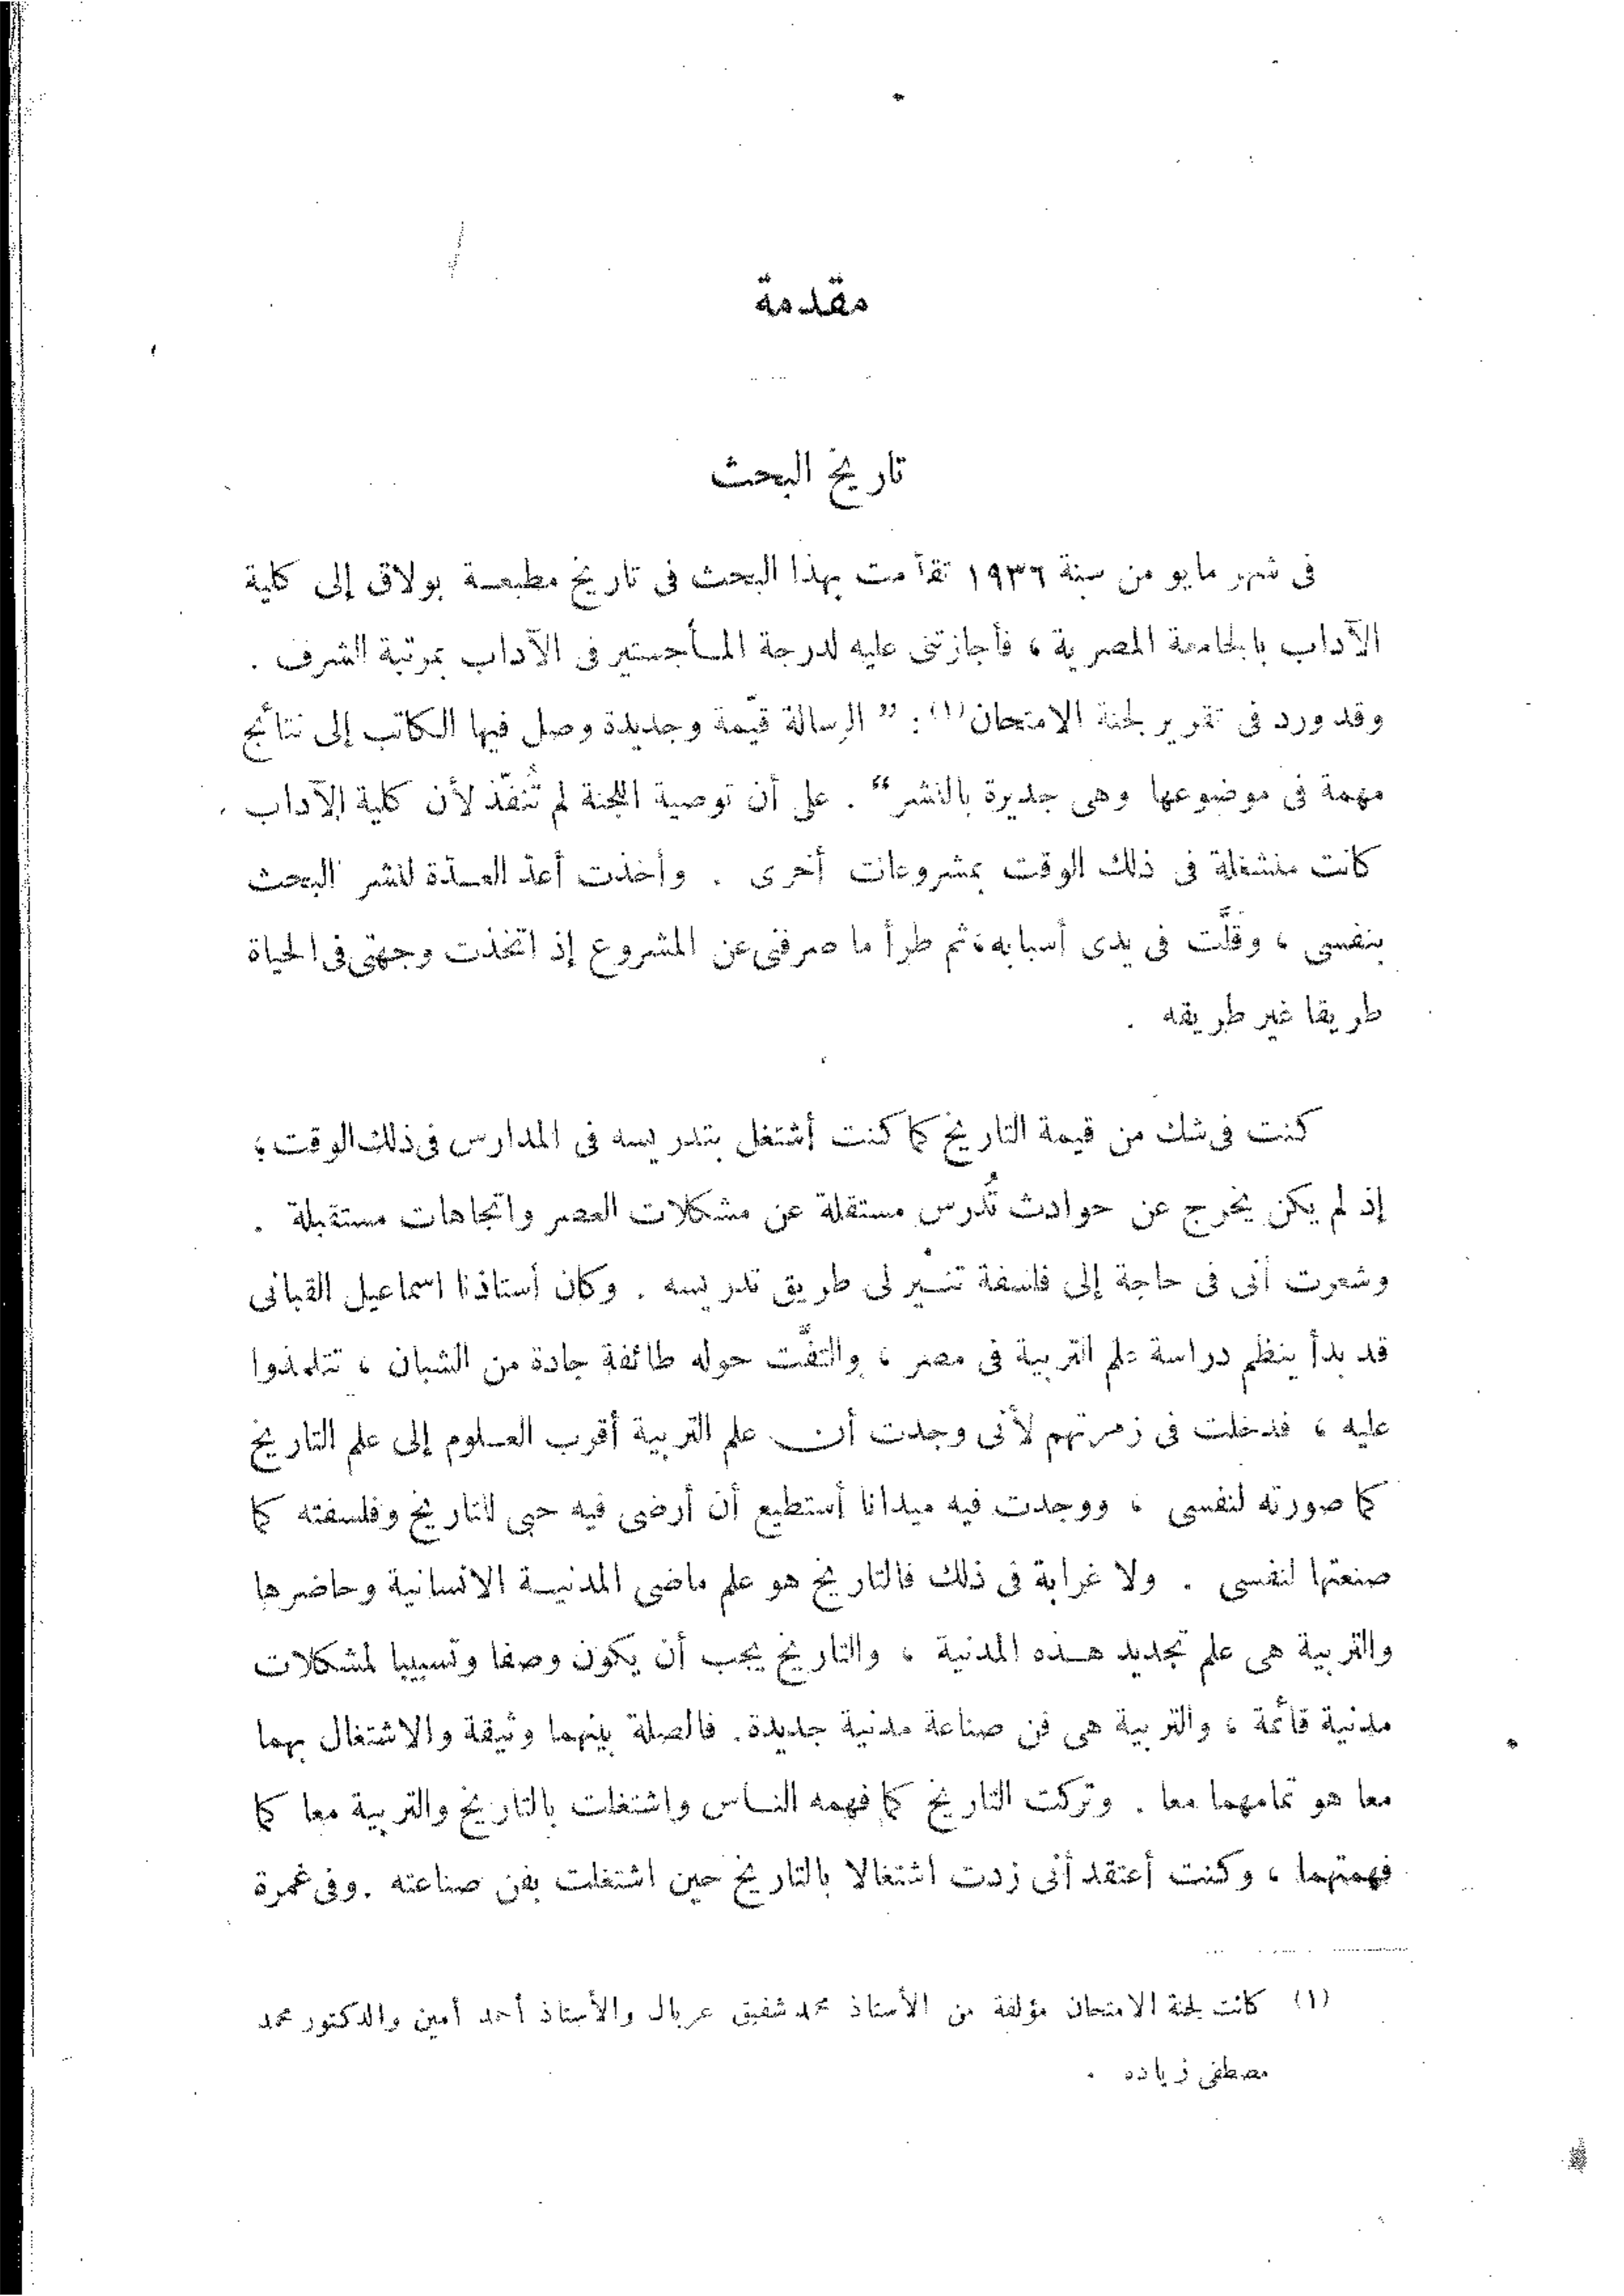 مقدمة
تاريخ البحث
فى شهر مايو من سنة ١٩٣٦ تقدمت بهذا البحث فى تاريخ مطبعة بولاق إلى كلية
الآداب بالجامعة المصرية ، فأجازتنى عليه لدرجة المـاجستير فى الآداب بمرتبة الشرف .
وقد ورد فى تقرير لجنة الامتحان (١) : ” الرسالة قيّمة وجديدة وصل فيها الكاتب إلى نتائج
مهمة فى موضوعها وهى جديرة بالنشر “ . على أن توصية اللجنة لم تُنفّذ لأن كلية الآداب
كانت منشغلة فى ذلك الوقت بمشروعات أخرى . وأخذت أعدّ العـدّة لنشر البحث
بنفسى ، وقلَّت فى يدى أسبابه ، ثم طرأ ما صرفنى عن المشروع إذ اتخذت وجهتى فى الحياة
طريقا غير طريقه .
كنت فى شك من قيمة التاريخ كما كنت أشتغل بتدريسه فى المدارس فى ذلك الوقت ؛
إذ لم يكن يخرج عن حوادث تُدرس مستقلة عن مشكلات العصر واتجاهات مستقبلة .
وشعرت أنى فى حاجة إلى فلسفة تنـير لى طريق تدريسه . وكان أستاذنا اسماعيل القبانى
قد بدأ ينظم دراسة علم التربية فى مصر ، والتفَّت حوله طائفة جادة من الشبان ، تتلمذوا
عليه ، فدخلت فى زمرتهم لأنى وجدت أن علم التربية أقرب العـلوم إلى علم التاريخ
كما صورته لنفسى ، ووجدت فيه ميدانا أستطيع أن أرضى فيه حبى للتاريخ وفلسفته كما
صنعتها لنفسى . ولا غرابة فى ذلك فالتاريخ هو علم ماضى المدنيـة الانسانية وحاضرها
والتربية هى علم تجديد هـذه المدنية ، والتاريخ يجب أن يكون وصفا وتسبيبا لمشكلات
مدنية قائمة ، والتربية هى فن صناعة مدنية جديدة . فالصلة بينهما وثيقة والاشتغال بهما
معا هو تمامهما معا . وتركت التاريخ كما فهمه النـاس واشتغلت بالتاريخ والتربية معا كما
فهمتهما ، وكنت أعتقد أنى زدت اشتغالا بالتاريخ حين اشتغلت بفن صناعته . وفى غمرة
(١) كانت لجنة الامتحان مؤلفة من الأستاذ محمد شفيق غربال والأستاذ أحمد أمين والدكتور محمد
مصطفى زياده .